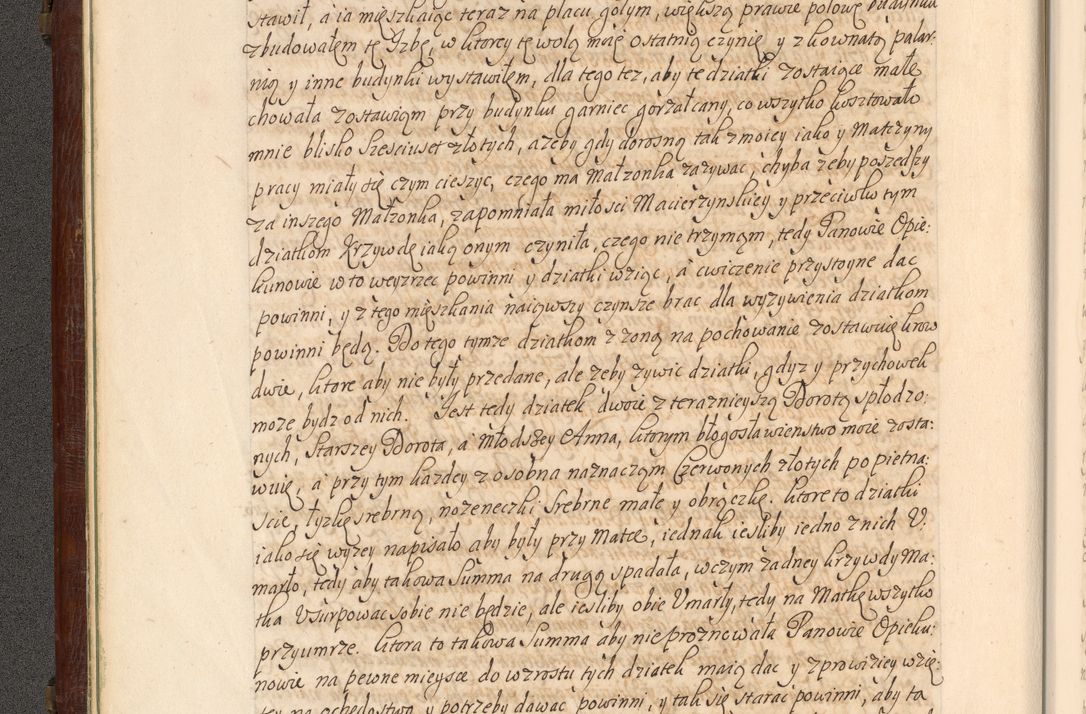 stawił, a ia mięszkaiąc teraz na placu gołym, większą prawie połowę budynku
zbudowałem tę Izbę, w ktorey tę wolą moię ostatnią czynię y z kownatą palar:
nią y inne budynki wystawiłem, dla tego też, aby te dziatki zostaiące małe
chowała zostawiąm przy budynku garniec gorzałczany, co wszytko kosztowało
mnie blisko sześciuset złotych, ażeby gdy dorosną tak z moiey iako y Matczyny
pracy miały się czym cieszyc, czego ma Małzonka zazywac, chyba żeby poszedszy
za inszego Małzonka, zapomniała miłosci Macierzynskiey y przeciwko tym
dziatkom Krzywdę iaką onym czyniła, czego nie trzymąm, tedy Panowie Opie:
kunowie w to weyrzec powinni y dziatki wziąc, a cwiczenie przystoyne dac
powinni, y z tego mięszkania naiąwszy czynsze brac dla wyzywienia dziatkom
powinni będą. Do tego tymze dziatkom z zoną na pochowanie zostawuię krow
dwie, ktore aby nie były przedane, ale żeby zywic dziatki, gdyz y przychowek
moze bydz od nich. Jest tedy dziatek dwoie z teraznieyszą Dorotą spłodzo:
nych, Starszey Dorota, a młodszey Anna, ktorym błogosławienstwo moie zosta:
wuię, a przy tym kazdey z osobna naznacząm Czerwonych złotych po piętna:
scie, łyzkę srebrną, nozeneczki Srebrne małe y obrączkę. ktore to dziatki
iako się wyzey napisało aby były przy Matce, iednak iesliby iedno z nich V.
marło, tedy aby takowa Summa na drugą spadała, w czym zadney krzywdy Ma:
tka Vsurpowac sobie nie będzie, ale iesliby obie Vmarły, tedy na Matkę wszytko
przyumrze. ktora to takowa Summa aby nie proznowała Panowie Opieku:
nowie na pewne mieysce do wzrostu tych dziatek maią dac y z prowiziey wzię:
tey na ochędostwo y potrzeby dawac powinni, y tak się starac powinni, aby ta